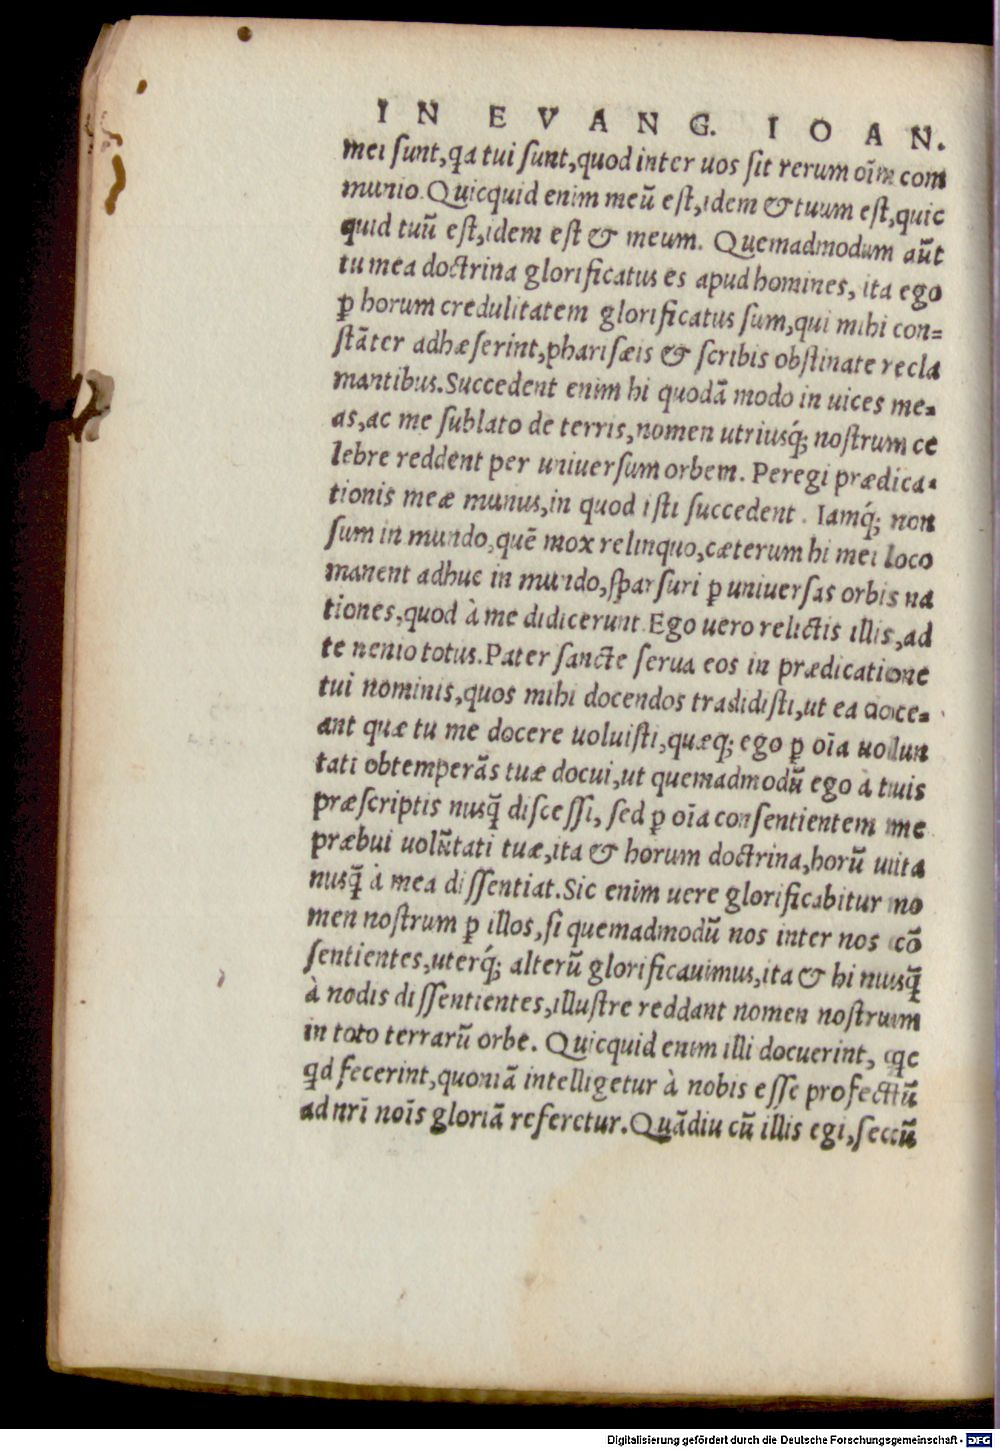 IN EVANG. IOAN.
mei sunt,qa tui sunt,quod inter uos sit rerum oīm com
munio.Quicquid enim meū est,idem & tuum est,quic
quid tuū est,idem est & meum. Quemadmodum aūt
tu mea doctrina glorificatus es apud homines, ita ego
ꝑ horum credulitatem glorificatus sum,qui mihi con=
stāter adhæserint,pharisæis & scribis obstinate recla
mantibus.Succedent enim hi quodā modo in uices me=
as,ac me sublato de terris,nomen utriusq́; nostrum ce
lebre reddent per uniuersum orbem. Peregi prædica=
tionis meæ munus,in quod isti succedent. Iamq́; non
sum in mundo,quē mox relinquo,cæterum hi mei loco
manent adhuc in mundo,sparsuri ꝑ uniuersas orbis na
tiones,quod à me didicerunt.Ego uero relictis illis,ad
te uenio totus.Pater sancte serua eos in prædicatione
tui nominis,quos mihi docendos tradidisti,ut ea doce=
ant quæ tu me docere uoluisti,quæq; ego ꝑ oīa uolun
tati obtemperās tuæ docui,ut quemadmodū ego a tuis
præscriptis nusq̄ discessi, sed ꝑ oīa consentientem me
præbui uolūtati tuæ,ita & horum doctrina,horū uita
nusq̄ à mea dissentiat.Sic enim uere glorificabitur no
men nostrum ꝑ illos,si quemadmodū nos inter nos cō
sentientes,uterq́; alterū glorificauimus,ita & hi nusq̄
à nobis dissentientes,illustre reddant nomen nostrum
in toto terrarū orbe. Quicquid enim illi docuerint, qc
qd fecerint,quoniā intelligetur à nobis esse profectū
ad nrī noīs gloriā referetur.Quādiu cū illis egi,secū
Digitalisierung gefördert durch die Deutsche Forschungsgemeinschaft - DFG